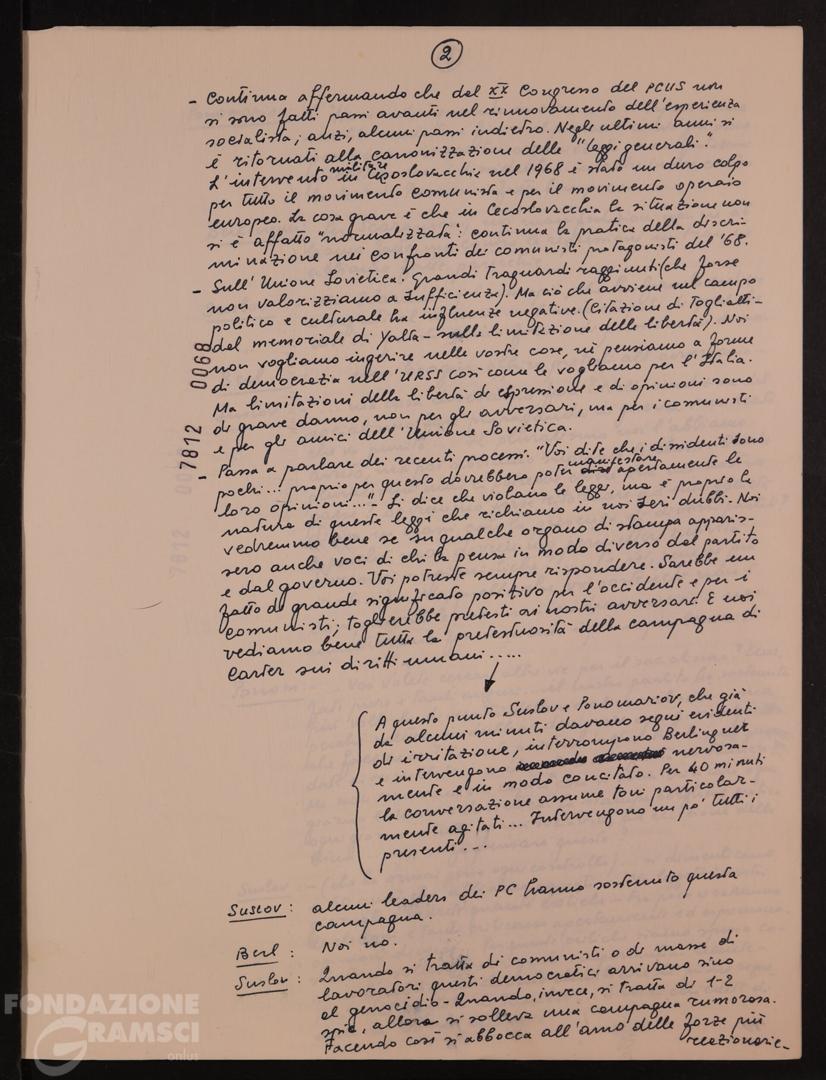 2
- Continua affermando che dal XX Congresso del PCUS non
si sono fatti passi avanti nel rinnovamento dell'esperienza
socialista; anzi, alcuni passi indietro. Negli ultimi anni si
è ritornati alla canonizzazione delle "leggi generali".
L'intervento militare in Cecoslovacchia nel 1968 è stato un duro colpo
per tutto il movimento comunista e per il movimento operaio
europeo. La cosa grave è che in Cecoslovacchia la situazione non
si è affatto "normalizzata": continua la pratica della discri-
minazione nei confronti dei comunisti protagonisti del '68.
- Sull'Unione Sovietica. Grandi traguardi raggiunti (che forse
non valorizziamo a sufficienza). Ma ciò che avviene nel campo
politico e culturale ha influenze negative. (Citazione di Togliatti -
dal memoriale di Yalta - sulla limitazione delle libertà). Noi
non vogliamo ingerire nelle vostre cose, nè pensiamo a forme
di democrazia nell'URSS così come le vogliamo per l'Italia.
Ma limitazioni della libertà di espressione e di opinioni sono
di grave danno, non per gli avversari, ma per i comunisti
e per gli amici dell'Unione Sovietica.
- Passa a parlare dei recenti processi. "Voi dite che i dissidenti sono
pochi... proprio per questo dovrebbero poter manifestare apertamente le
loro opinioni..." - Si dice che violano le leggi, ma è proprio la
natura di queste leggi che richiama in noi seri dubbi. Noi
vedremmo bene se su qualche organo di stampa apparis-
sero anche voci di chi la pensa in modo diverso dal partito
e dal governo. Voi potreste sempre rispondere. Sarebbe un
fatto di grande significato positivo per l'occidente e per i
comunisti; toglierebbe pretesti ai nostri avversari. E noi
vediamo bene tutta la pretestuosità della campagna di
Carter sui diritti umani .....
A questo punto Suslov e Ponomariov, che già
da alcuni minuti davano segni evidenti
di irritazione, interrompono Berlinguer
e intervengono nervosa-
mente e in modo concitato. Per 40 minuti
la conversazione assume toni particolar-
mente agitati... Intervengono un po' tutti i
presenti...
Suslov: alcuni leaders dei PC hanno sostenuto questa
campagna.
Berl: Noi no.
Suslov: Quando si tratta di comunisti o di masse di
lavoratori questi democratici arrivano sino
al genocidio - Quando, invece, si tratta di 1-2
spie, allora si solleva una campagna rumorosa.
Facendo così si abbocca all'amo delle forze più
reazionarie -
7812 0068
7812
FONDAZIONE
GRAMSCI
onlus